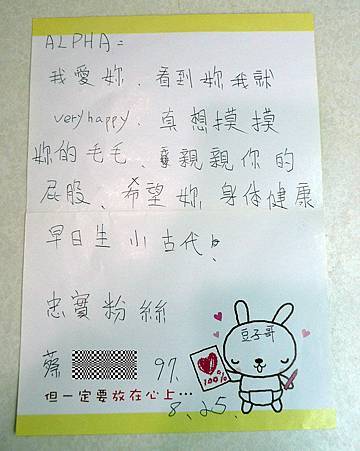 ALPHA=
我愛妳、看到妳我就
very happy、真想摸摸
妳的毛毛、親親你的
屁股、希望妳身体健康
早日生小古代、
忠實粉絲
豆子哥
100%
蔡 97、
但一定要放在心上…
8、25、